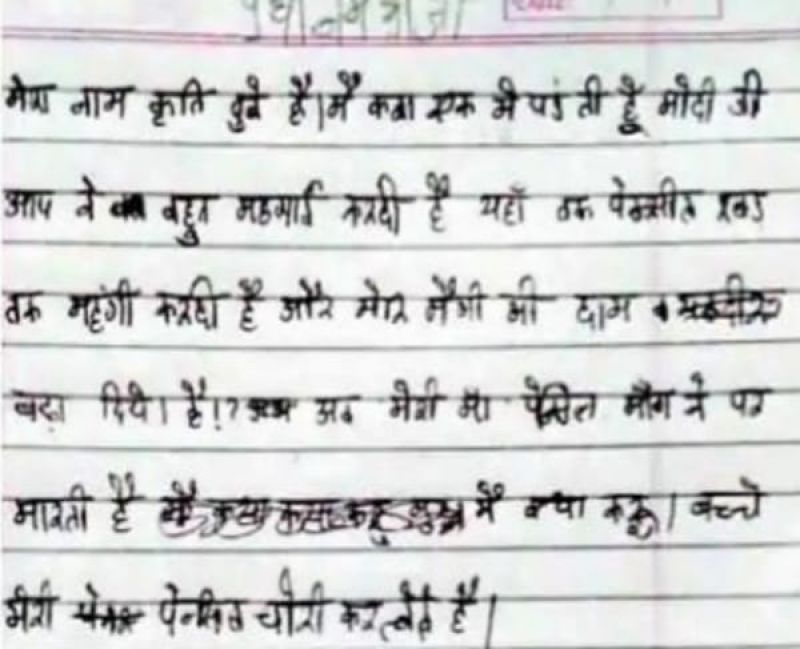 प्रधानमंत्री जी
मेरा नाम कृति दुबे है। मैं कक्षा एक मे पडंती हूँ मोदी जी
आप ने बहुत महगाई करदी है यहाँ तक पेन्सील रबड
तक महंगी करदी है और मेरि मैगी की दाम
बढ़ा दिये। है!? अब मेरी माँ पेंसिल माँग ने पर
मारती है मैं क्या करू। बच्चे
मेरी पेन्सिल चोरी कर लेते है।